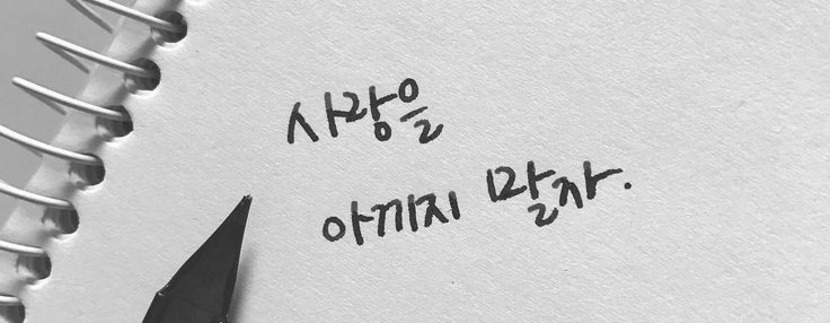 사랑을
아끼지 말자.